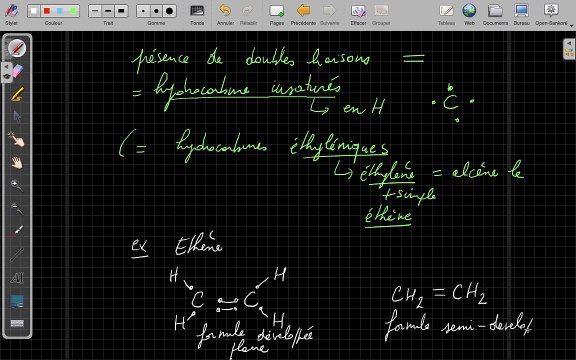 Stylos Couleur Ligne Gomme Fonds Annuler Rétablir Pages Précédente Suivante Effacer Grouper Tableau Web Documents Bureau Open-Sankoré
présence de doubles liaisons =
= hydrocarbure insaturés
↳ en H
C
(= hydrocarbures éthyléniques
↳ éthylène = alcène le
+ simple
éthène
ex Ethène
H H
C = C
H H
CH2 = CH2
formule développée
plane
formule semi-dévelop